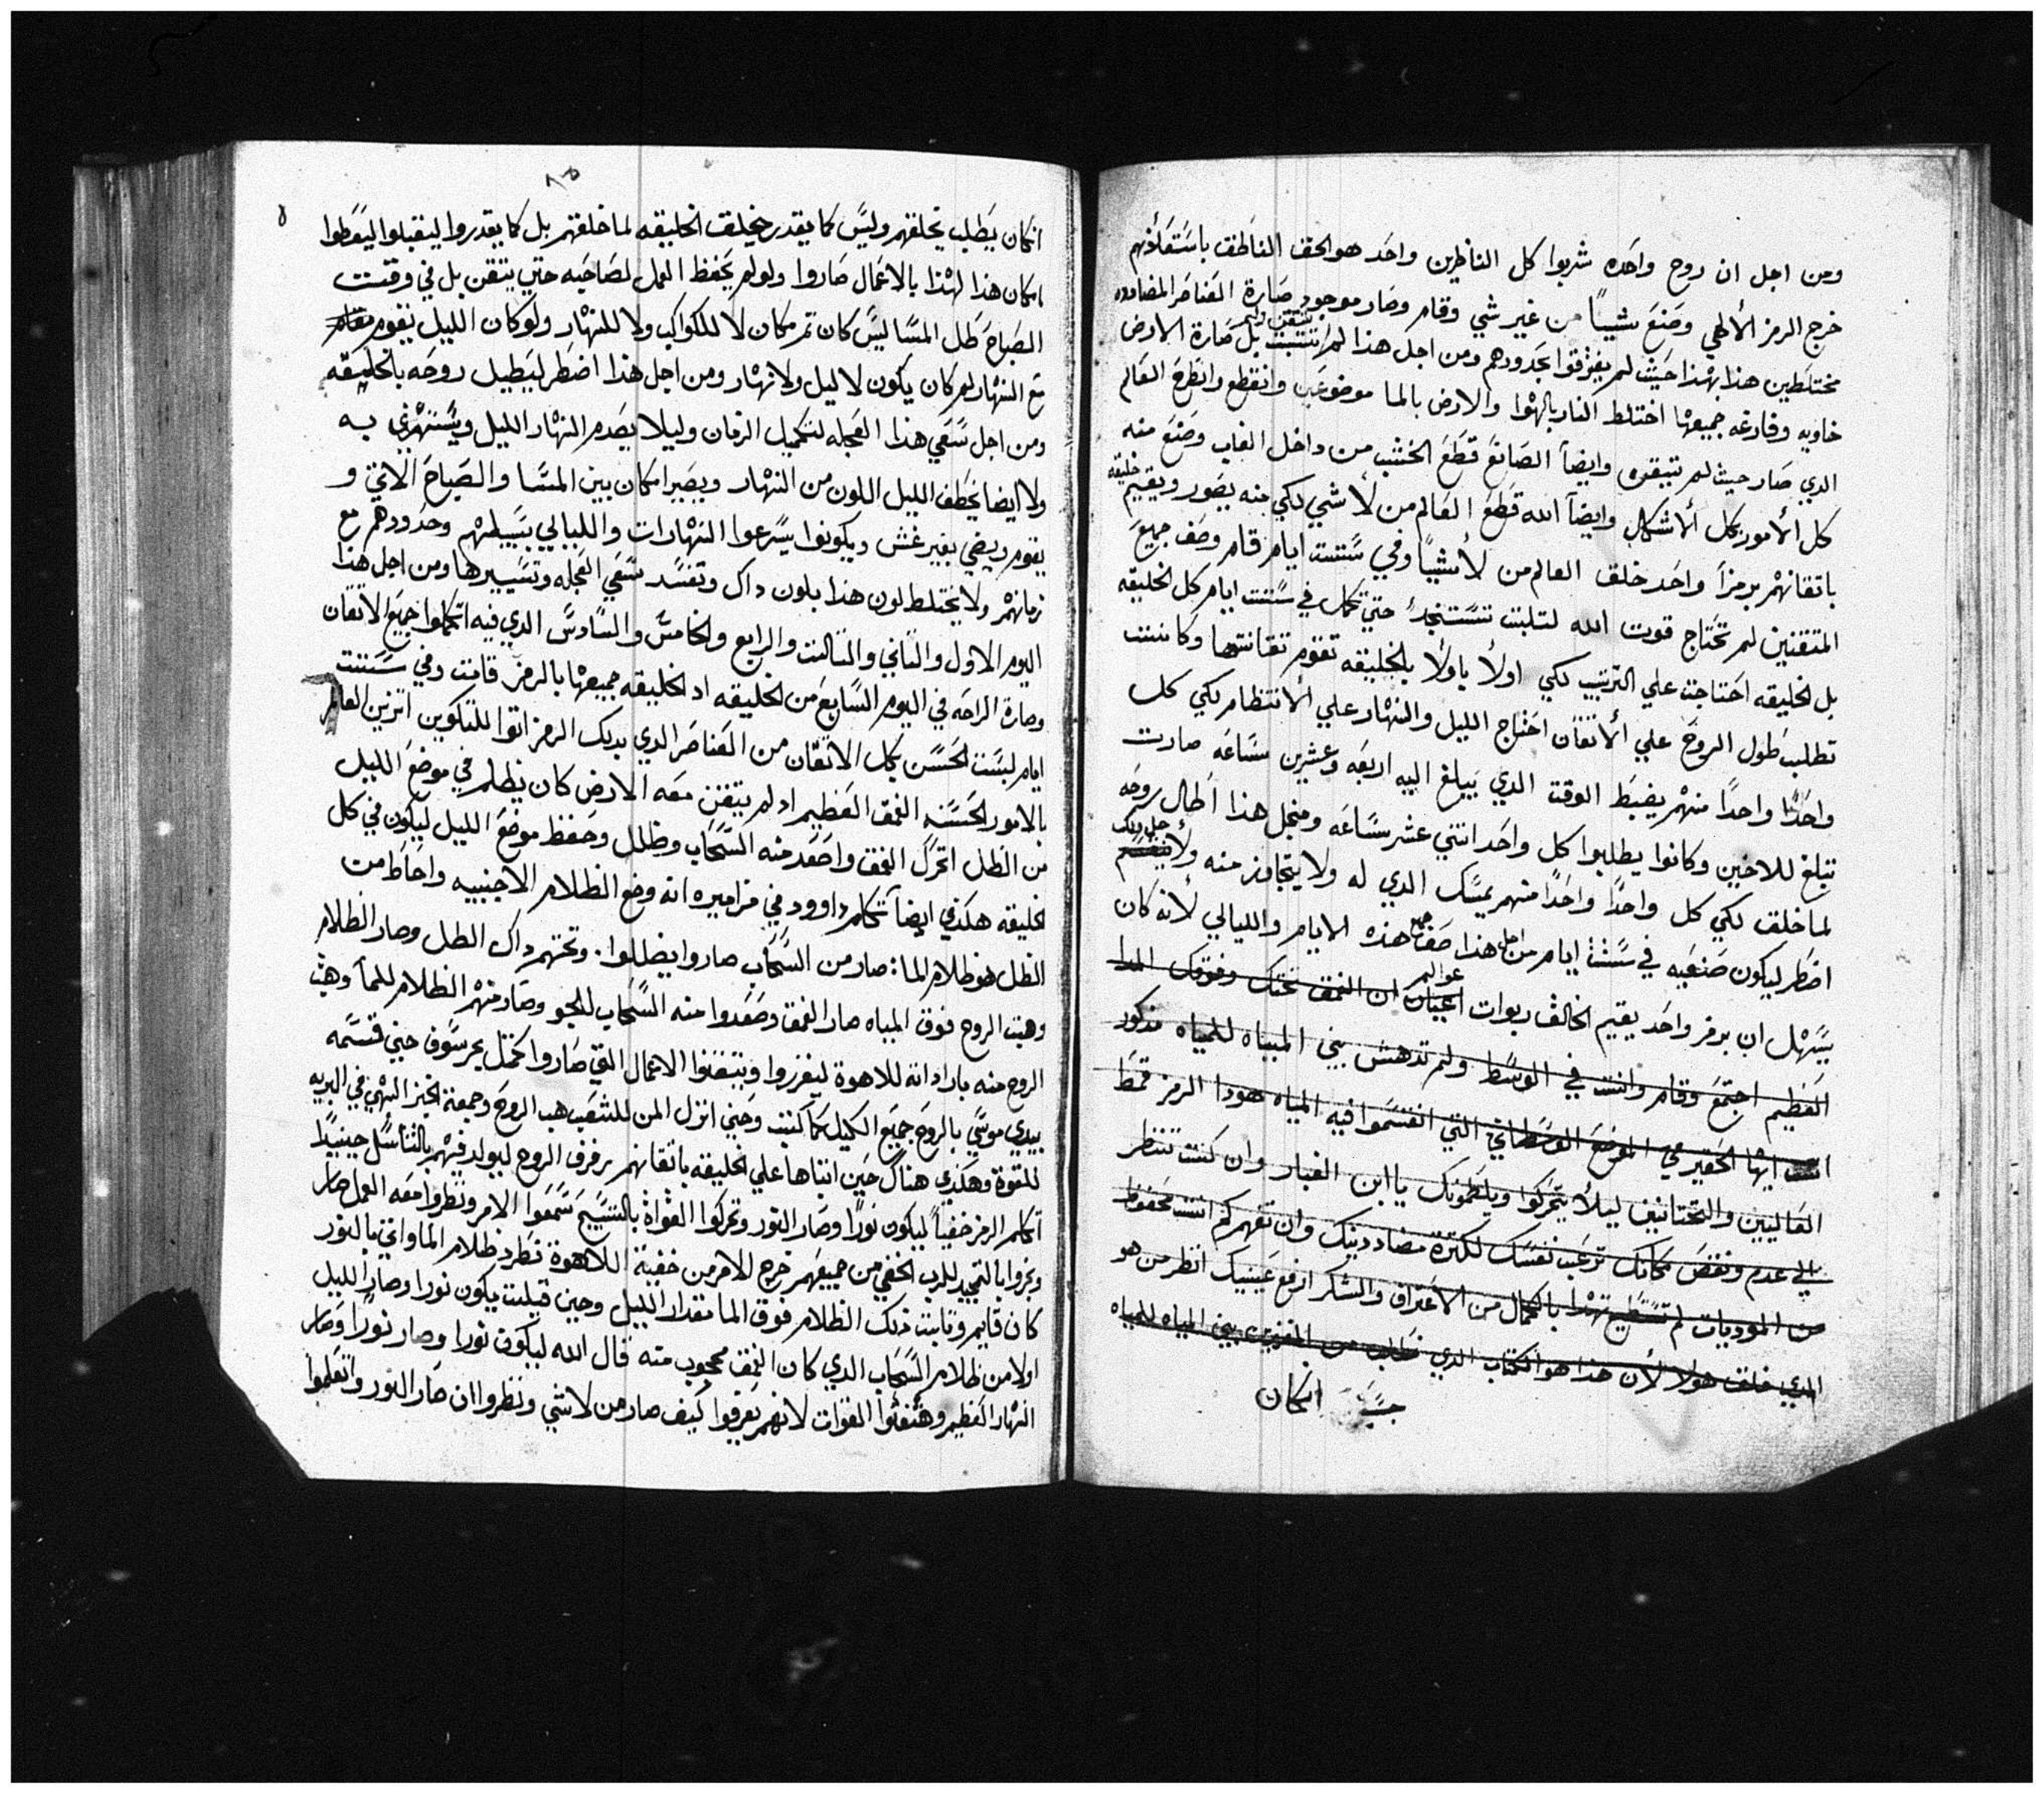 ومن اجل ان روح واحده شربوا كل الناظرين واحد هو الحق الناطق باستعلانهم
خرج الرمز الألاهي وصنع شيياً من غير شي وقام وصار موجود صارة العناصر المضادده
مختلطين هذا بهذا حيث لم يفترقوا بحدودهم ومن اجل هذا لم تتثبت بل صارة الارض
تتقن ولم
خاويه وفارغه جميعها اختلط النار بالهوا والارض بالما موضوعين وانقطع وانطرح العالم
الدي صار حيث لم تتبقوم وايضاً الصانع قطع الخشب من داخل الغاب وصنع منه
كل ألامور بكل ألاشكال وايضاً الله قطع العالم من لأ شي لكي منه يصور ويقيم خليقه
باتقانهم برمزاً واحد خلق العالم من لأشياً وفي ستت ايام قام وصف جميع
المتقنين لم تحتاج قوت الله لتلبت تستنجد حتي تكمل في ستت ايام كل الخليقه
بل الخليقه احتاجت علي الترتيب لكي اولأ باولأ بالخليقه تقوم تقانتها وكانت
تطلب طول الروح علي ألاتقان احتاج الليل والنهار علي ألانتظام لكي كل
واحداً واحداً منهم يضبط الوقت الدي يبلغ اليه اربعه وعشرين ساعه صارت
تبلغ للاخين وكانوا يطلبوا كل واحد اتني عشر ساعه ومنجل هذا اطال روحه
لما خلق لكي كل واحداً واحداً منهم يمسك الدي له ولا يتجاوز منه ولأ
اضطر ليكون صنعيه في ستت ايام من اجل هذا صف هذه الايام والليالي لأنه كان
يسهل ان برمز واحد يقيم الخالق ربوات اعيان ان الغمق تحتك وفوقك الما
عوالم
العظيم اجتمع وقام وانت في الوسط ولم تدهش بيني المياه للمياه مذكور
انت ايها الحقير في الموضع الوسطاني التي انقسموا فيه المياه هودا الرمز قمط
العاليين والتحتانيين ليلأ يتحركوا ويلطمونك يا ابن الغبار وان كنت تنتظر
الي عدم ونقص مكانك ترعب نفسك لكترة مضاددينك وان تقهركم انت محفوظ
من الموديات لم تستطيع تهدا بالكمال من الأعتراف والشكر ارفع عينيك انظر من هو
الدي خلق هولا لأن هذا هو الكتاب الدي بيني المياه للمياه
انكان
انكان يطلب يخلقهم وليس كما يقدر يخلق الخليقه لما خلقهم بل كما يقدروا ليقبلوا ليعطوا
امكان هذا لهذا بالاعمال صاروا ولو لم يحفظ العمل لصاحبه حتي يتقن بل في وقتت
الصباح ظل المسا ليس كان تم مكان لا للكواكب ولا للنهار ولو كان الليل يقوم مقام
مع النهار لم كان يكون لا ليل ولا نهار ومن اجل هذا اضطر ليطيل روحه بالخليقه
ومن اجل سعي هذا العجله لتكميل الزمان وليلا يصدم النهار الليل ويستهزي به
ولا ايضا يخطف الليل اللون من النهار ويصير امكان بين المسا والصباح الاتي و
يقوم ويضي بغير غش ويكونوا يسرعوا النهارات والليالي بسبيلهم وحدودهم مع
زمانهم ولا يختلط لون هذا بلون داك وتفسد سعي العجله وتسييرها ومن اجل هذا
اليوم الاول والتاني والتالت والرابع والخامس والسادس الدي فيه اتكملوا جميع الاتقان
وصارة الراحه في اليوم السابع من الخليقه اد الخليقه جميعها بالرمز قامت وفي ستت
ايام لبست الحسن بكل الاتقان من العناصر الدي بديك الرمز اتوا للتكوين اتزين العالم
بالامور الحسنه الغمق العظيم اد لم يتقن معه الارض كان يظلم في موضع الليل
من الظل اتحرك الغمق واصعد منه السحاب وظلل وحفظ موضع الليل ليكون في كل
الخليقه هكذي ايضاً تكلم داوود في مزاميره انه وضع الظلام الاجنبيه واحاط من
الظل هو ظلام الما: صار من السحاب صاروا يضللوا. وتحتهم داك الظل وصار الظلام
وهبت الروح فوق المياه صار الغمق وصعدوا منه السحاب للجو وصار منهم الظلام للما وهبت
الروح منه بارادته للاهوة ليفرزوا ويتقنوا الاعمال التي صاروا كمتل بحر سوف حيني قسمه
بيدي موسي بالروح جميع الكيل كما كتبت وحيني انزل المن للشعب هب الروح وجمعة الخبز النهي في البريه
للقوة وهكذي هناك حين انباها علي الخليقه باتقانهم رفرف الروح ليولد فيهم بالتناسل حينيداً
اتكلم الرمز خفياً ليكون نوراً وصار النور وتحركوا القواة بالتسبيح سمعوا الامر ونظروا معه العمل صار
وبخروا بالتمجيد للرب الخفي من جميعهم خرج الامر من خفية اللاهوة تطرد ظلام الما واتي بالنور
كان قايم وتابت ذلك الظلام فوق الما مقدار الليل وحين قبلت يكون نورا وصار الليل
اولا من ظلام السحاب الدي كان الغمق محجوب منه قال الله ليكون نورا وصار نوراً وصار
النهار العظيم وهتفتوا القوات لانهم يعرفوا كيف صار من لاشي ونظروا ان صار النور واتعلموا